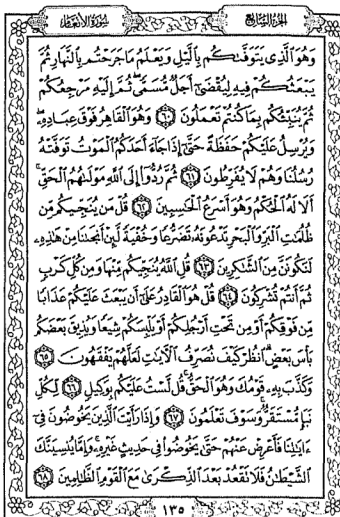 الجزء السابع سورة الأنعام
وَهُوَ ٱلَّذِى يَتَوَفَّىٰكُم بِٱلَّيْلِ وَيَعْلَمُ مَا جَرَحْتُم بِٱلنَّهَارِ ثُمَّ
يَبْعَثُكُمْ فِيهِ لِيُقْضَىٰٓ أَجَلٌ مُّسَمًّى ثُمَّ إِلَيْهِ مَرْجِعُكُمْ
ثُمَّ يُنَبِّئُكُم بِمَا كُنتُمْ تَعْمَلُونَ ٦٠ وَهُوَ ٱلْقَاهِرُ فَوْقَ عِبَادِهِۦ
وَيُرْسِلُ عَلَيْكُمْ حَفَظَةً حَتَّىٰٓ إِذَا جَآءَ أَحَدَكُمُ ٱلْمَوْتُ تَوَفَّتْهُ
رُسُلُنَا وَهُمْ لَا يُفَرِّطُونَ ٦١ ثُمَّ رُدُّوٓا۟ إِلَى ٱللَّهِ مَوْلَىٰهُمُ ٱلْحَقِّ
أَلَا لَهُ ٱلْحُكْمُ وَهُوَ أَسْرَعُ ٱلْحَٰسِبِينَ ٦٢ قُلْ مَن يُنَجِّيكُم مِّن
ظُلُمَٰتِ ٱلْبَرِّ وَٱلْبَحْرِ تَدْعُونَهُۥ تَضَرُّعًا وَخُفْيَةً لَّئِنْ أَنجَىٰنَا مِنْ هَٰذِهِۦ
لَنَكُونَنَّ مِنَ ٱلشَّٰكِرِينَ ٦٣ قُلِ ٱللَّهُ يُنَجِّيكُم مِّنْهَا وَمِن كُلِّ كَرْبٍ
ثُمَّ أَنتُمْ تُشْرِكُونَ ٦٤ قُلْ هُوَ ٱلْقَادِرُ عَلَىٰٓ أَن يَبْعَثَ عَلَيْكُمْ عَذَابًا
مِّن فَوْقِكُمْ أَوْ مِن تَحْتِ أَرْجُلِكُمْ أَوْ يَلْبِسَكُمْ شِيَعًا وَيُذِيقَ بَعْضَكُم
بَأْسَ بَعْضٍ ٱنظُرْ كَيْفَ نُصَرِّفُ ٱلْءَايَٰتِ لَعَلَّهُمْ يَفْقَهُونَ ٦٥
وَكَذَّبَ بِهِۦ قَوْمُكَ وَهُوَ ٱلْحَقُّ قُل لَّسْتُ عَلَيْكُم بِوَكِيلٍ ٦٦ لِّكُلِّ
نَبَإٍ مُّسْتَقَرٌّ وَسَوْفَ تَعْلَمُونَ ٦٧ وَإِذَا رَأَيْتَ ٱلَّذِينَ يَخُوضُونَ فِىٓ
ءَايَٰتِنَا فَأَعْرِضْ عَنْهُمْ حَتَّىٰ يَخُوضُوا۟ فِى حَدِيثٍ غَيْرِهِۦ وَإِمَّا يُنسِيَنَّكَ
ٱلشَّيْطَٰنُ فَلَا تَقْعُدْ بَعْدَ ٱلذِّكْرَىٰ مَعَ ٱلْقَوْمِ ٱلظَّٰلِمِينَ ٦٨
١٣٥